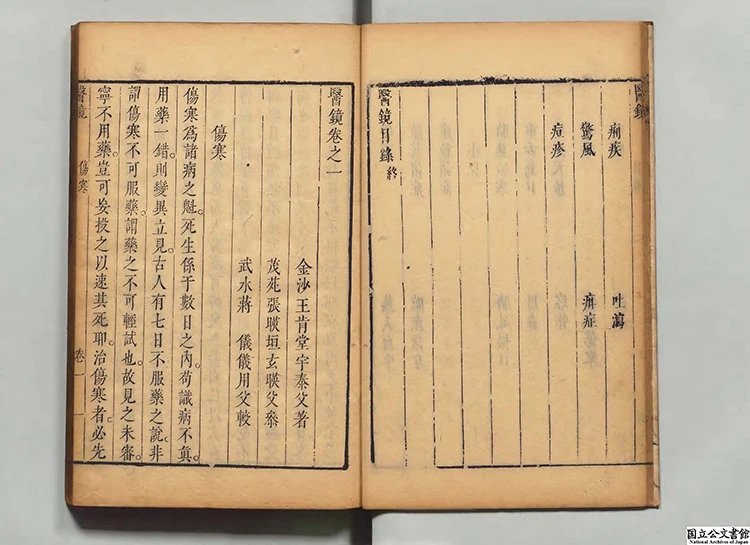 醫鏡
痢疾 吐瀉
驚風 疳症
痘疹
醫鏡目錄終
醫鏡卷之一
金沙王肯堂宇泰父著
茂苑張暎垣玄暎父叅
武水蔣 儀儀用父較
傷寒
傷寒爲諸病之魁。死生係于數日之內。苟識病不眞。
用藥一錯。則變異立見。古人有七日不服藥之說。非
謂傷寒不可服藥。謂藥之不可輕試也。故見之未審。
寧不用藥。豈可妄投之以速其死耶。治傷寒者。必先
醫鏡 傷寒 卷一 一
国立公文書館
National Archives of Japan